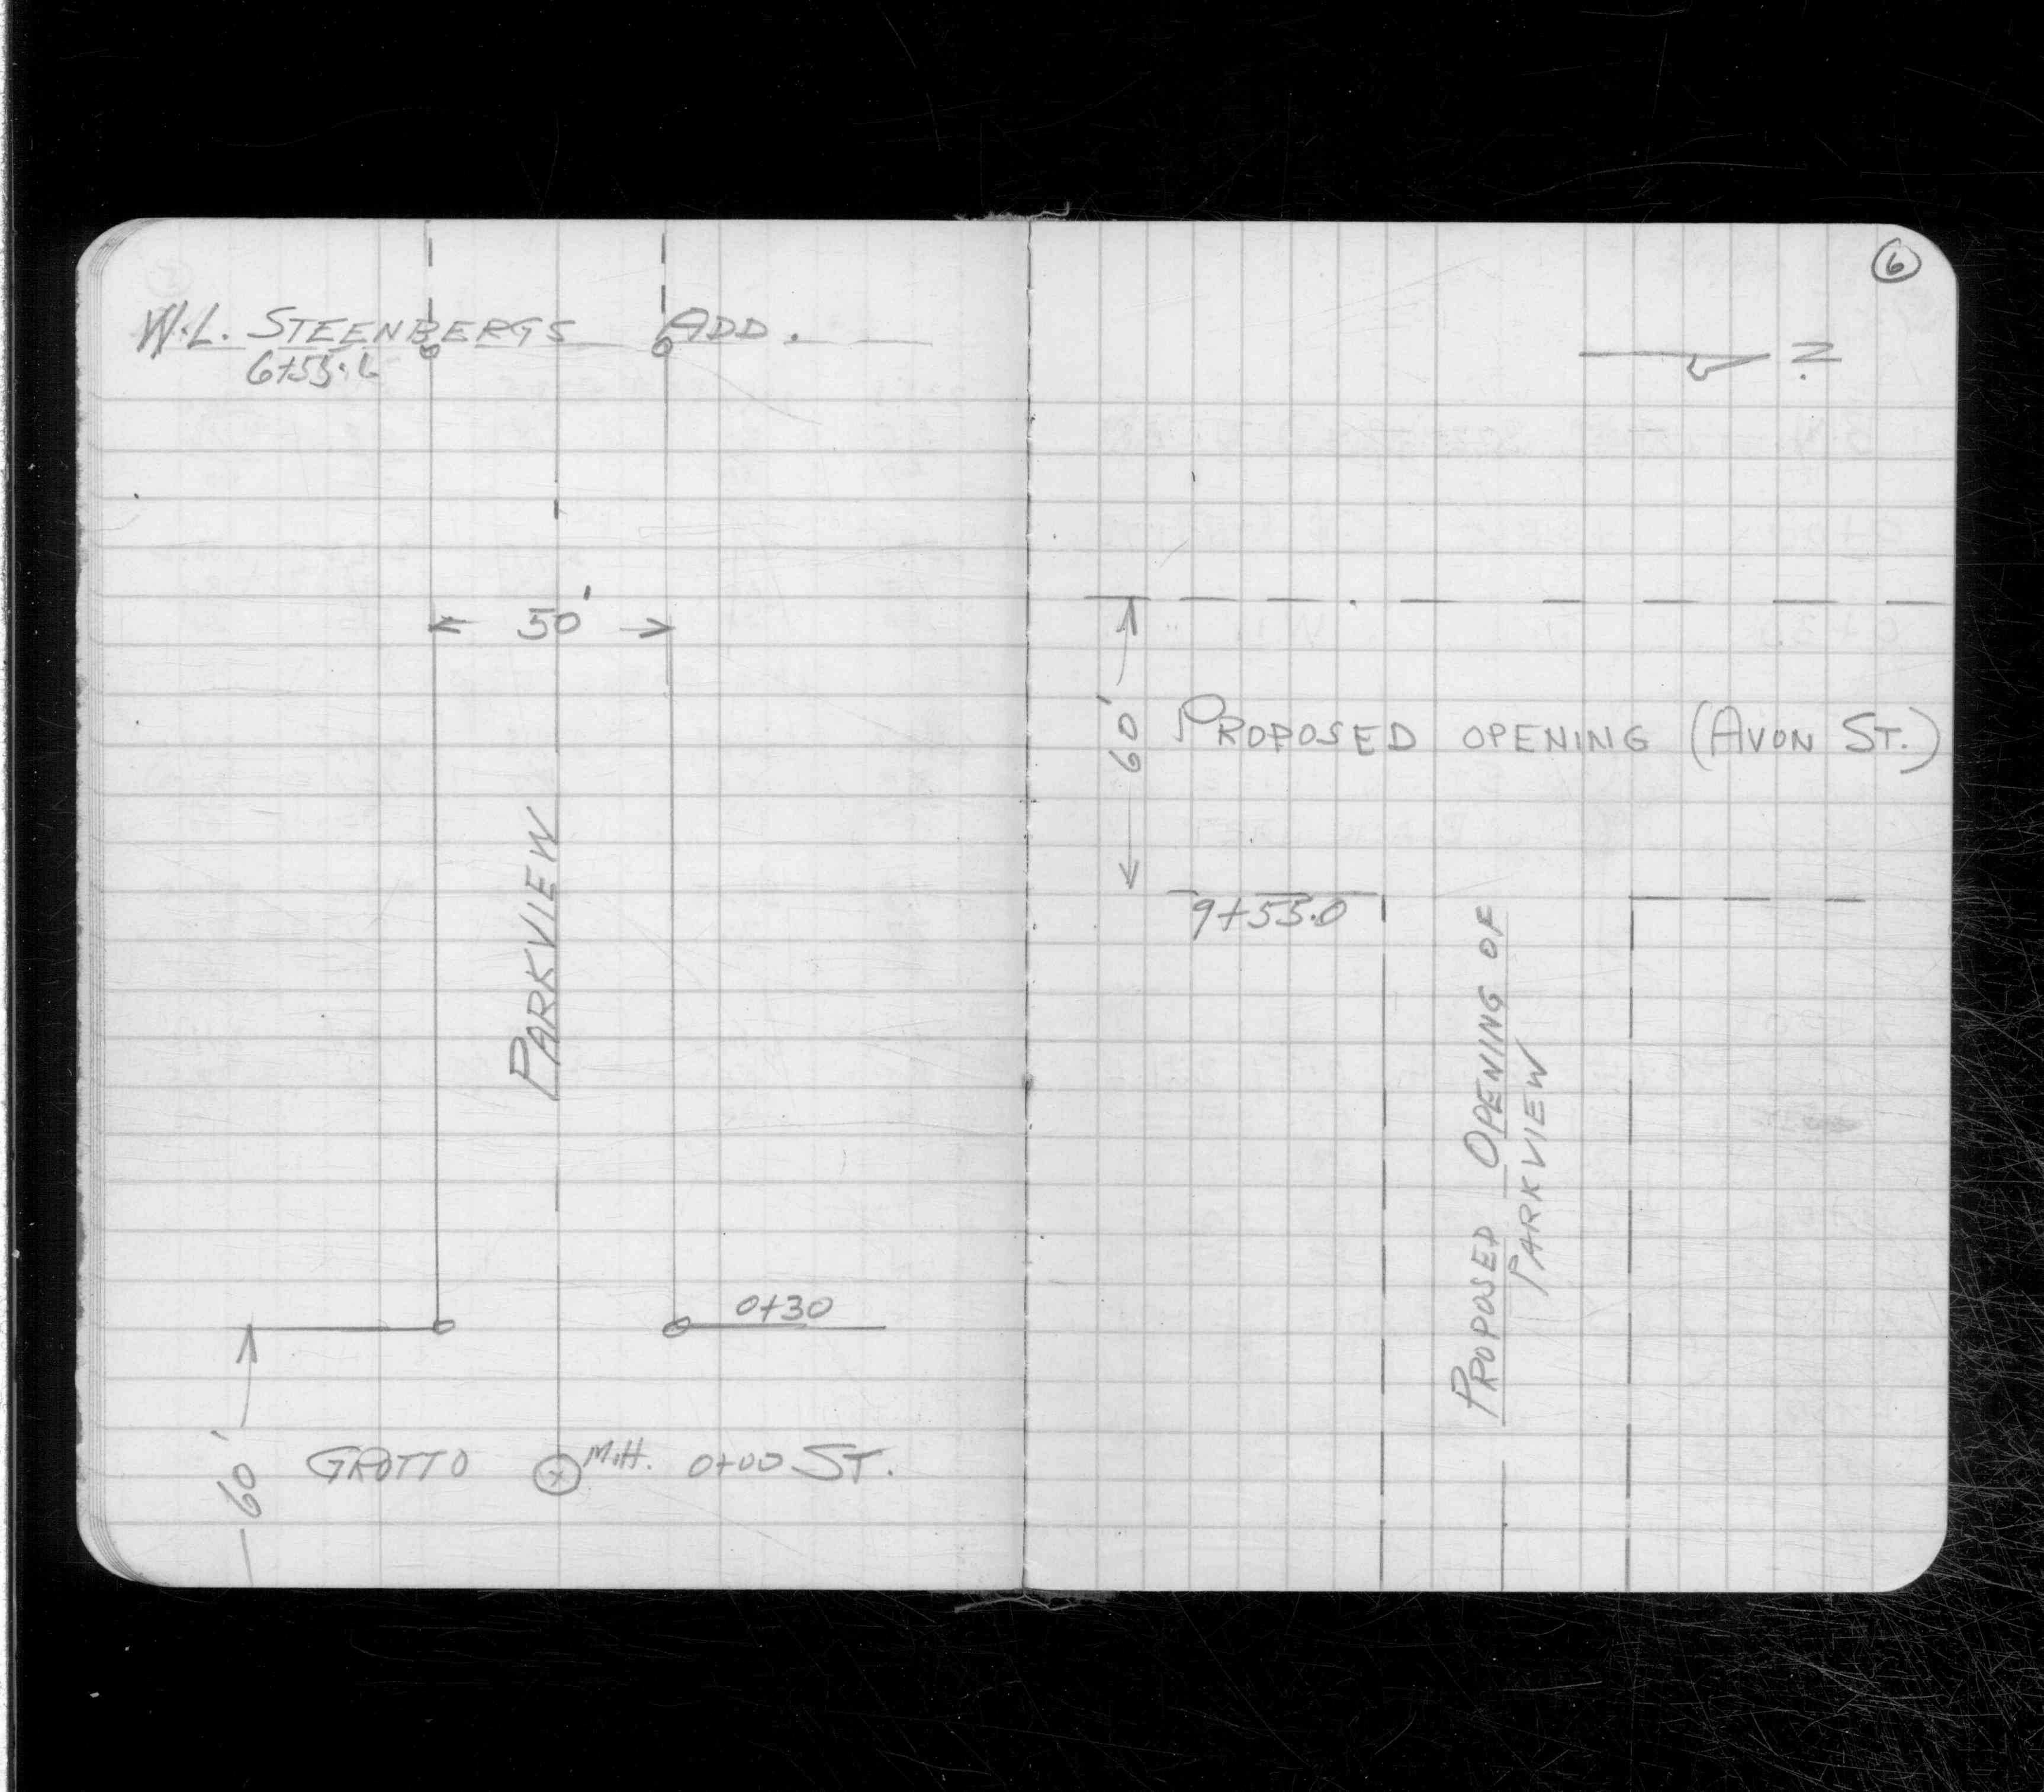 W.L. STEENBERGS ADD.
6+53.6
50'
PARKVIEW
0+30
60'
GROTTO M.H. 0+00 ST.
6
N.
60'
PROPOSED OPENING (AVON ST.)
9+53.0
PROPOSED OPENING OF
PARKVIEW